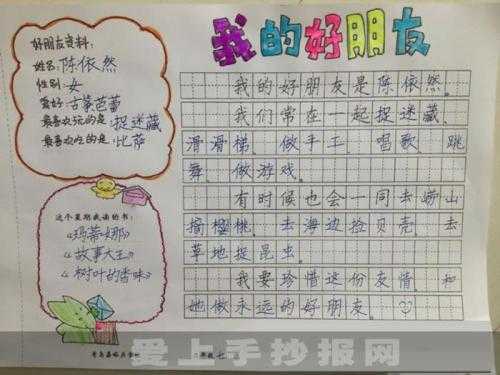 我的好朋友
好朋友资料:
姓名:陈依然
性别:女
爱好:古筝芭蕾
最喜欢玩的是 捉迷藏
最喜欢吃的是 比萨
这个星期我读的书:
《玛蒂娜》
《故事大王》
《树叶的香味》
我的好朋友是陈依然。
我们常在一起捉迷藏、
滑滑梯、做手工、唱歌、跳
舞、做游戏。
有时候也会一同去崂山
摘樱桃、去海边捡贝壳、去
草地捉昆虫。
我要珍惜这份友情,和
她做永远的好朋友。
爱上手抄报网